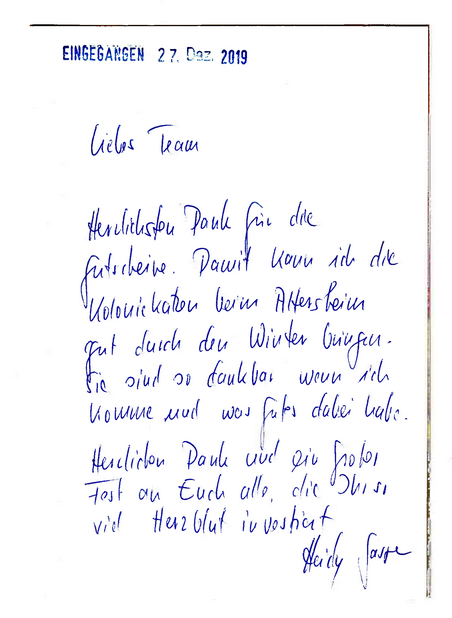 EINGEGANGEN 27. Dez. 2019
Liebes Team
Herzlichsten Dank für die
Gutscheine. Damit kann ich die
Koloniekatzen beim Altersheim
gut durch den Winter bringen.
Sie sind so dankbar wenn ich
komme und was gutes dabei habe.
Herzlichen Dank und ein frohes
Fest an Euch alle, die Ihr so
viel Herzblut investiert
Heidy